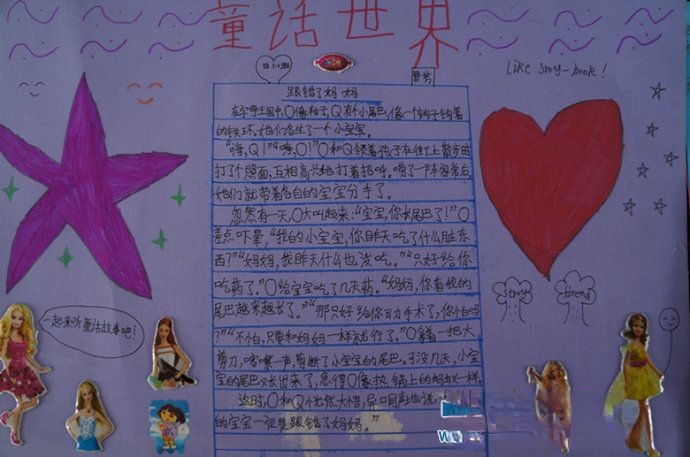 童话世界
Like srory-book!
跟错了妈妈
在字母王国中,O像积子,Q有个小尾巴,像一个钩子钩着
的铁环,她们各生了一个小宝宝。
“嗨,Q!”“嗨,O!”O和Q领着孩子在街上散步时
打了个照面,互相高兴地打着招呼,唠了一阵家常后,
她们就带着各自的宝宝分手了。
忽然有一天,O大叫起来:“宝宝,你长尾巴了!”O
差点吓晕,“我的小宝宝,你昨天吃了什么脏东
西?”“妈妈,我昨天什么也没吃。”“只好给你
吃药了。”O给宝宝吃了几天药。“妈妈,你看我的
尾巴越来越长了。”“那只好给你动手术了,你怕吗
?”“不怕,只要和妈妈一样就行了。”O拿着一把大
剪刀,“喀嚓”一声,剪断了小宝宝的尾巴。可没几天,小宝
宝的尾巴又长出来了,急得O像热锅上的蚂蚁一样。
这时,O和Q恍然大悟,异口同声地说
的宝宝一定是跟错了妈妈。”
Story
frend
一起来听童话故事吧!